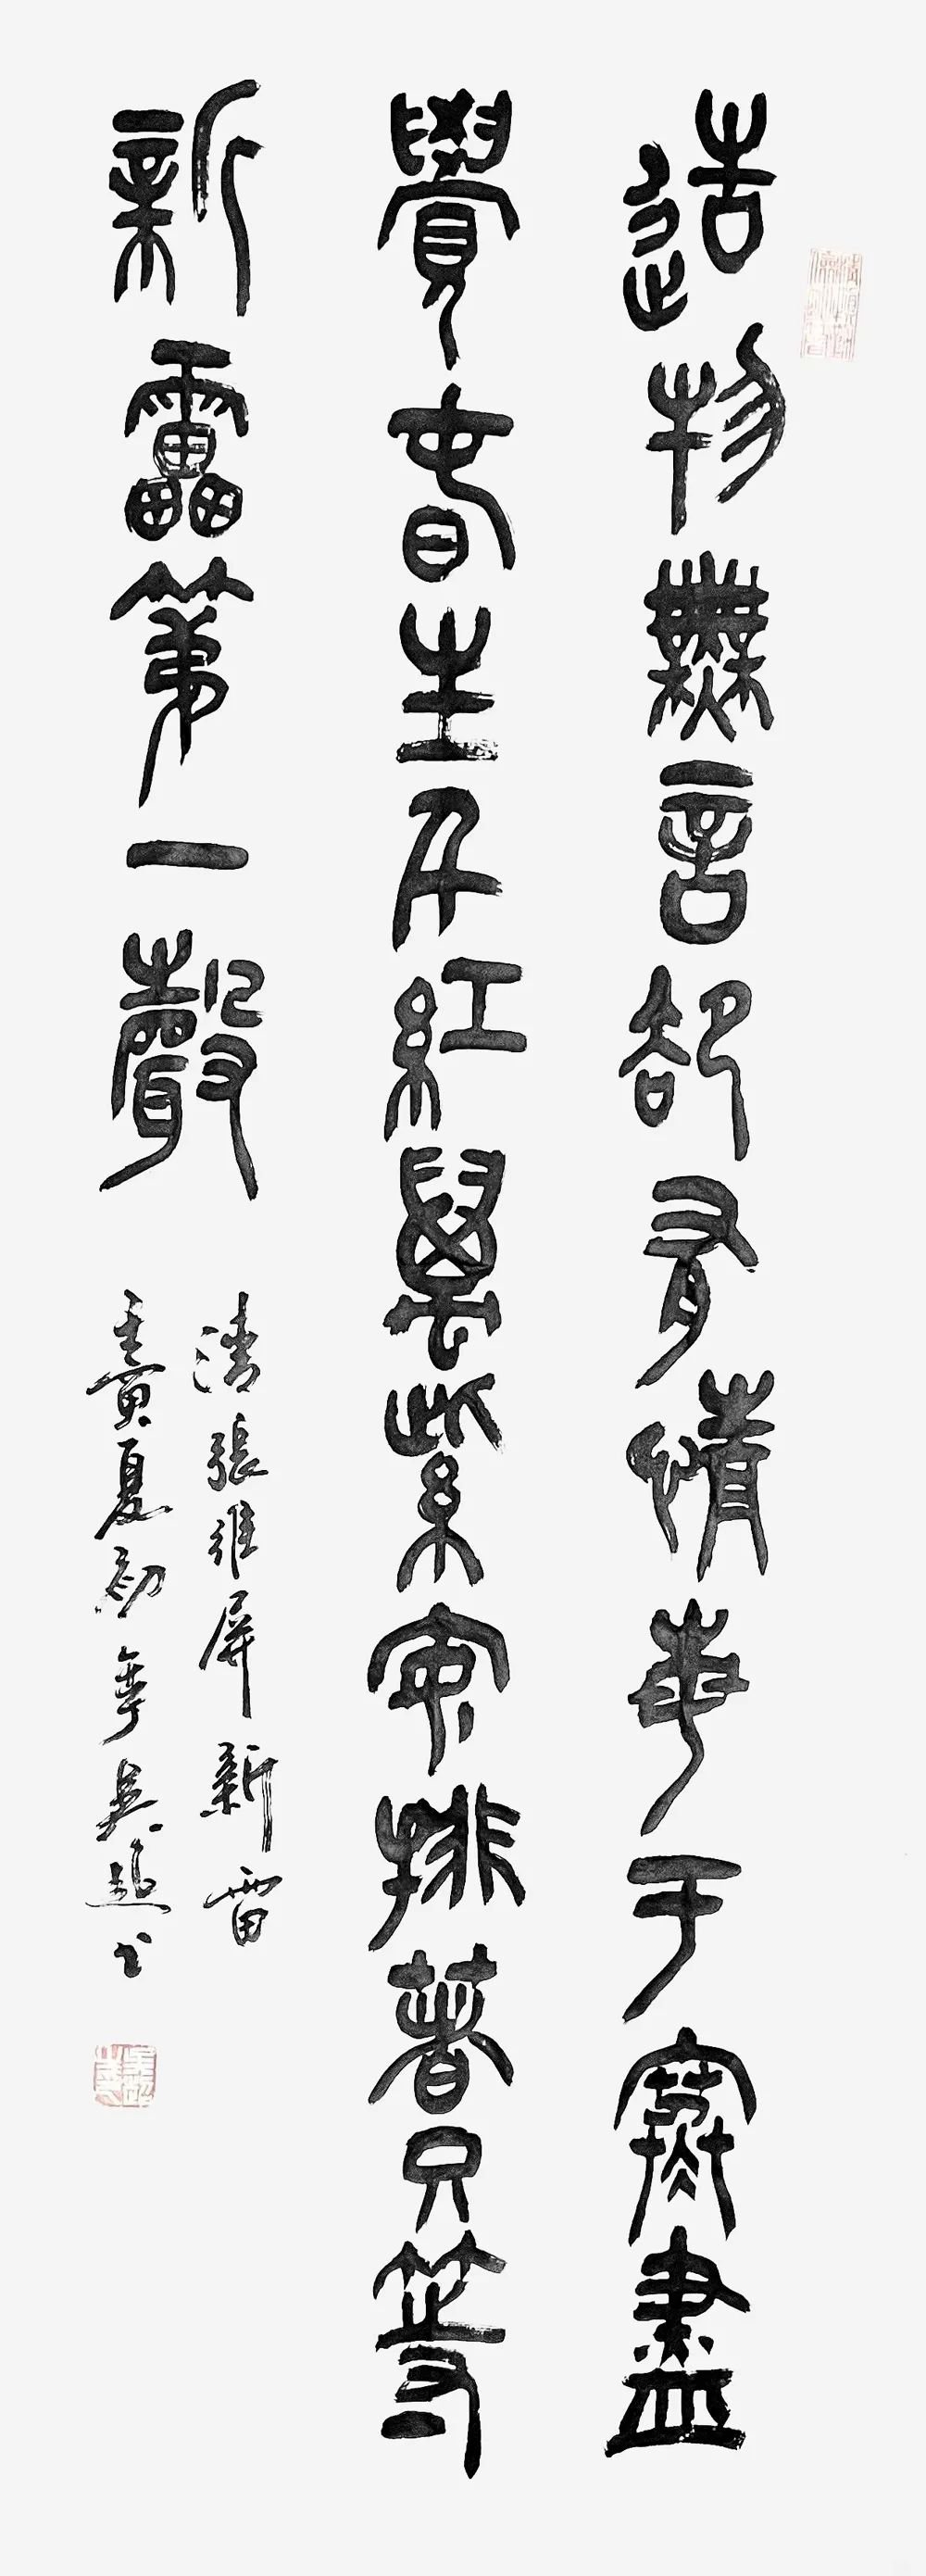 造物無言卻有情每于寒盡
覺春生千紅萬紫安排著只等
新雷第一聲
清張維屏新雷
壬寅夏初吳超书